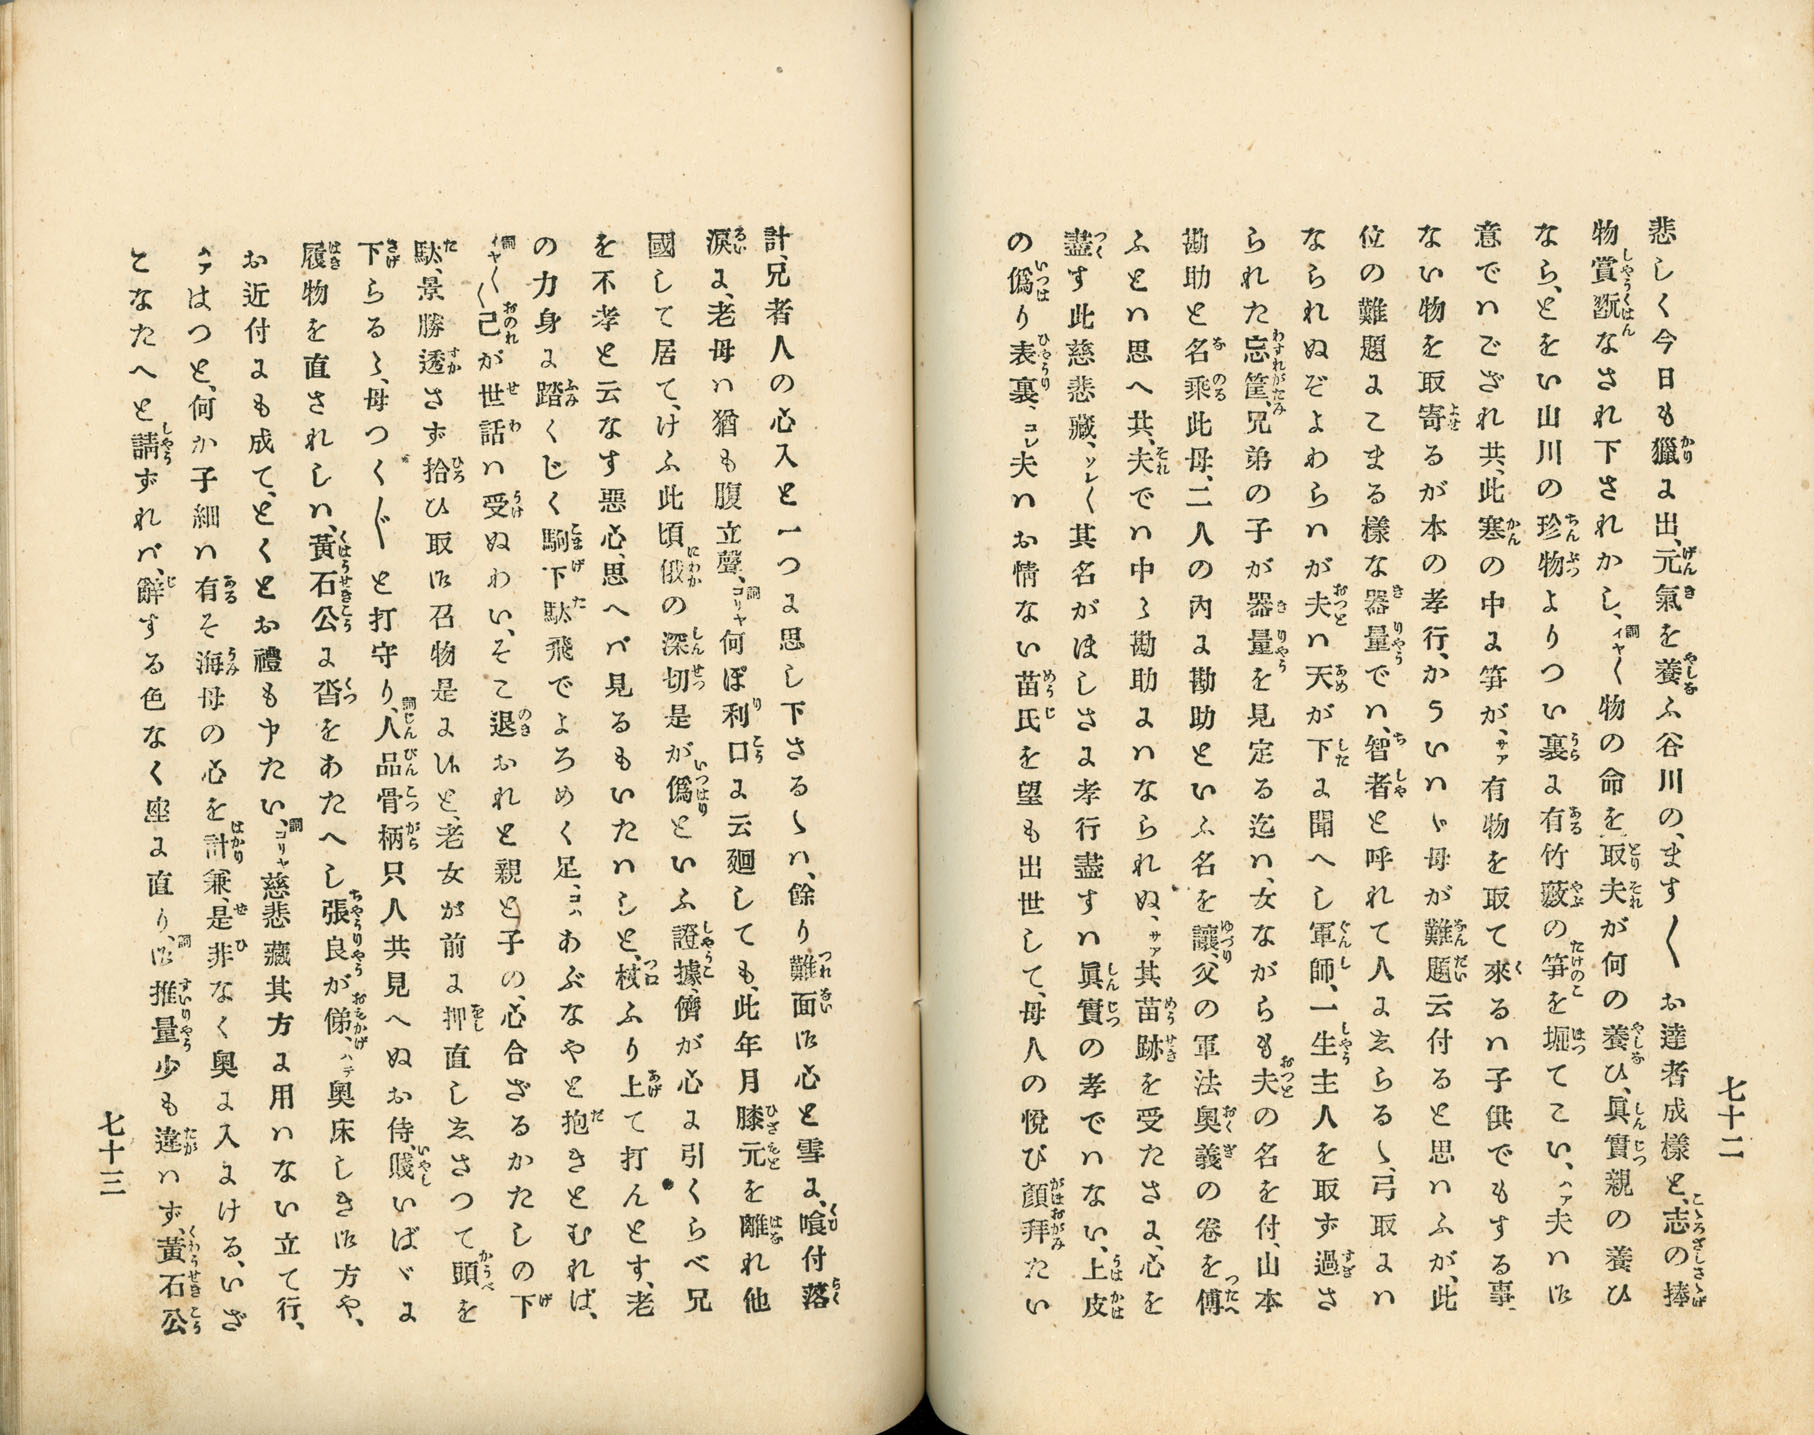 七十二
悲しく今日も獵に出、元氣を養ふ谷川の、ます〱お達者成樣と、志の捧
物賞翫なされ下されかし、イヤ〱物の命を取夫が何の養ひ、眞實親の養ひ
なら、とをい山川の珍物よりつい裏に有竹藪の笋を堀てこい、ハア夫ハ御
意でハござれ共、此寒の中に笋が、サア有物を取て來るハ子供でもする事、
ない物を取寄るが本の孝行、かういハヾ母が難題云付ると思ハふが、此
位の難題にこまる樣な器量でハ、智者と呼れて人に志らるゝ、弓取にハ
なられぬぞよわらハが夫ハ天が下に聞へし軍師、一生主人を取ず過さ
られた忘筐、兄弟の子が器量を見定る迄ハ、女ながらも夫の名を付、山本
勘助と名乘此母、二人の內に勘助といふ名を讓、父の軍法奧義の卷を傳
ふとハ思へ共、夫でハ中々勘助にハなられぬ、サア其苗跡を受たさに、心を
盡す此慈悲藏、ソレ〱其名がほしさに孝行盡すハ眞實の孝でハない、上皮
の僞り表裏、コレ夫ハお情ない苗氏を望も出世して、母人の悅び顏拜たい
計、兄者人の心入と一つに思し下さるゝハ、餘り難面御心と雪に、喰付落
淚に、老母ハ猶も腹立聲、コリヤ何ぼ利口に云廻しても、此年月膝元を離れ他
國して居て、けふ此頃俄の深切是が僞といふ證據、儕が心に引くらべ兄
を不孝と云なす惡心、思へバ見るもいたハしと、杖ふり上て打んとす、老
の力身に踏くじく駒下駄飛でよろめく足、コハあぶなやと抱きとむれば、
イヤ〱己が世話ハ受ぬわい、そこ退おれと親と子の、心合ざるかたしの下
駄、景勝透さず拾ひ取御召物是に候と、老女が前に押直し志さつて頭を
下らるゝ、母つく〲と打守り、人品骨柄只人共見へぬお侍、賤いばゞに
履物を直されしハ、黃石公に沓をあたへし張良が俤、ハテ奧床しき御方や、
お近付にも成て、とくとお禮も申たい、コリヤ慈悲藏其方に用ハない立て行、
ハアはつと、何か子細ハ有そ海母の心を計兼、是非なく奧に入にける、いざ
こなたへと請ずれバ、辭する色なく座に直り、御推量少も違ハず、黃石公
七十三